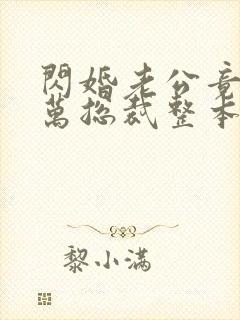 閃婚老公竟
萬捴裁整本
黎小满